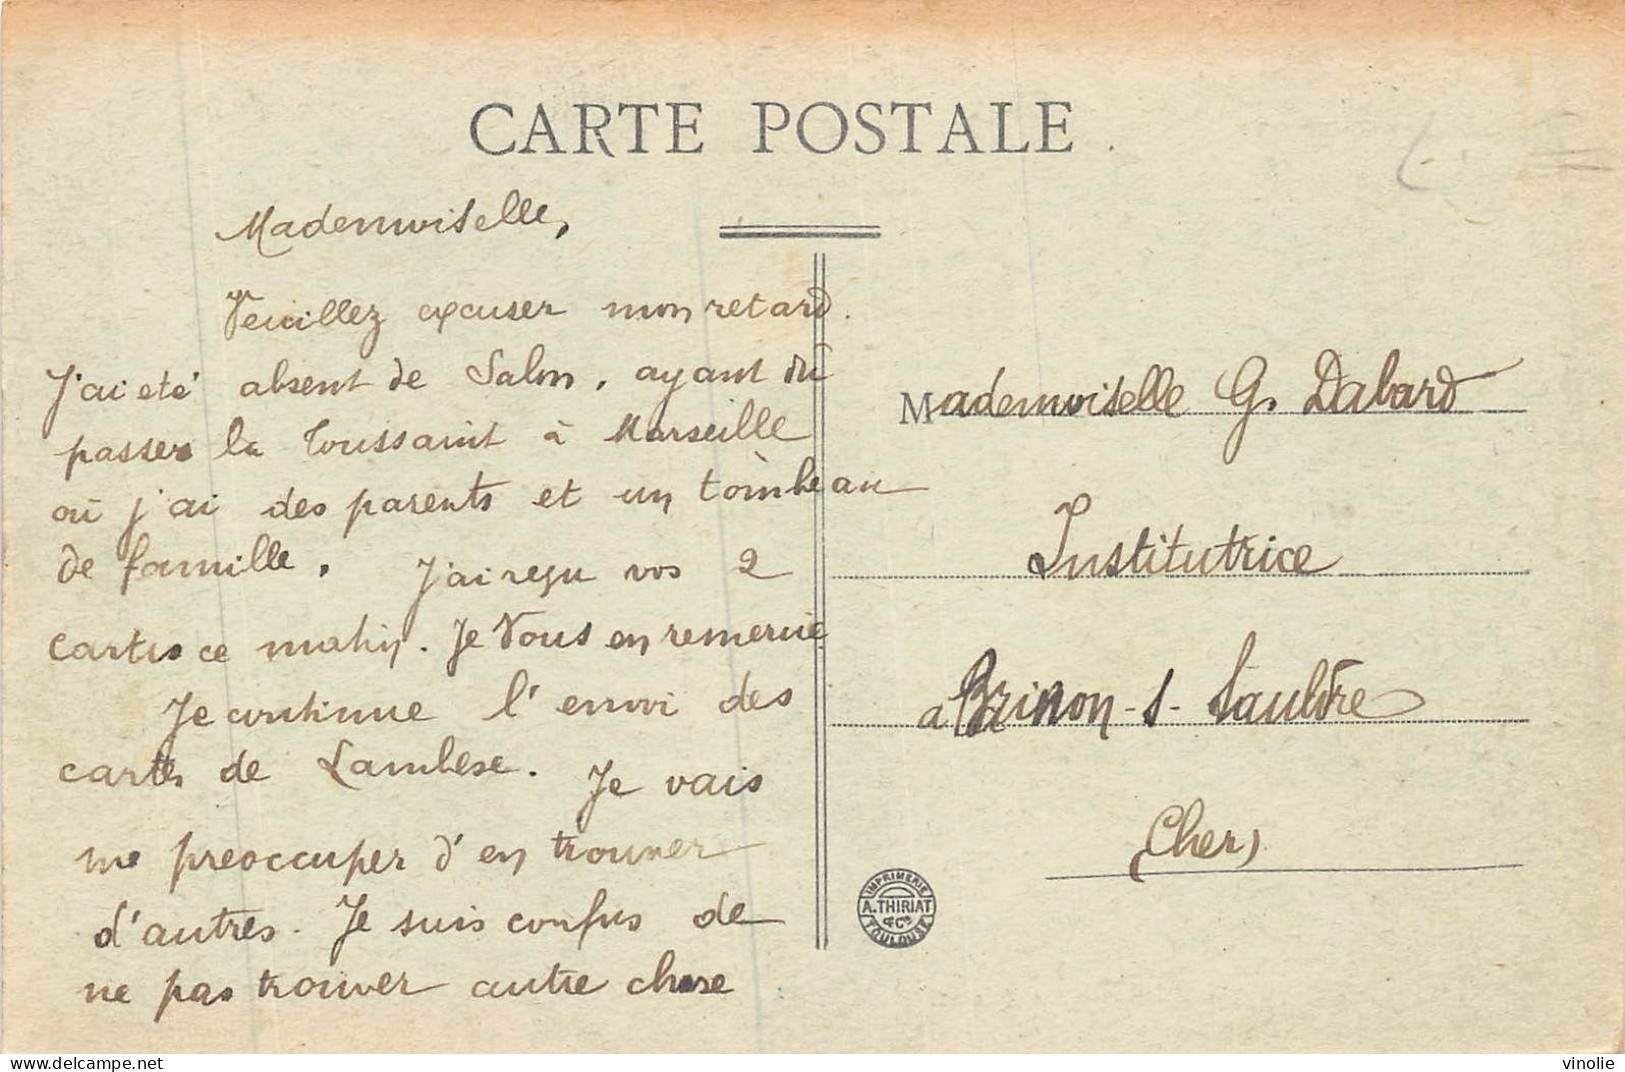 CARTE POSTALE
Mademoiselle,
Veuillez excuser mon retard.
J'ai eté absent de Salon, ayant dû
passer la Toussaint à Marseille
où j'ai des parents et un tombeau
de famille. J'ai reçu vos 2
cartes ce matin. Je vous en remercie
Je continue l'envoi des
cartes de Lambesc. Je vais
me preoccuper d'en trouver
d'autres. Je suis confus de
ne pas trouver autre chose
Mademoiselle G. Dabard
Institutrice
à Brinon-s-Sauldre
(Cher)
IMPRIMERIE
A. THIRIAT
& Cie
TOULOUSE
delcampe.net
vinolie